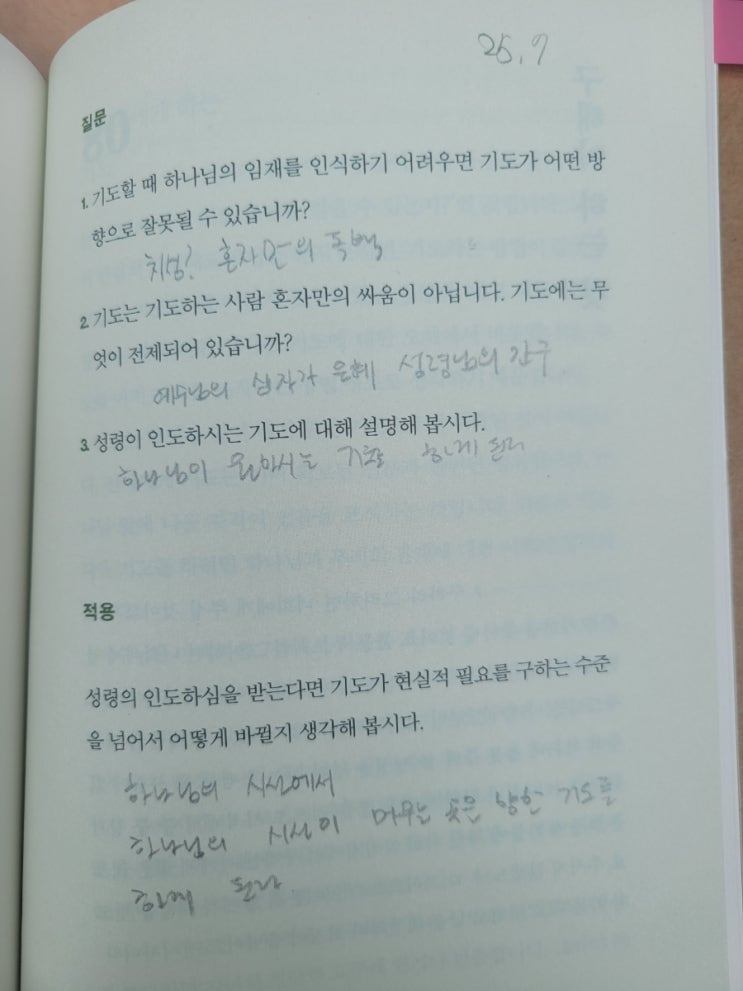 25. 9
질문
1. 기도할 때 하나님의 임재를 인식하기 어려우면 기도가 어떤 방
향으로 잘못될 수 있습니까?
치성? 혼자만의 독백
2. 기도는 기도하는 사람 혼자만의 싸움이 아닙니다. 기도에는 무
엇이 전제되어 있습니까?
예수님의 십자가 은혜 성령님의 간구
3. 성령이 인도하시는 기도에 대해 설명해 봅시다.
하나님이 원하시는 기도를 하게 된다
적용
성령의 인도하심을 받는다면 기도가 현실적 필요를 구하는 수준
을 넘어서 어떻게 바뀔지 생각해 봅시다.
하나님의 시선에서
하나님의 시선이 머무는 곳을 향한 기도를
하게 된다.